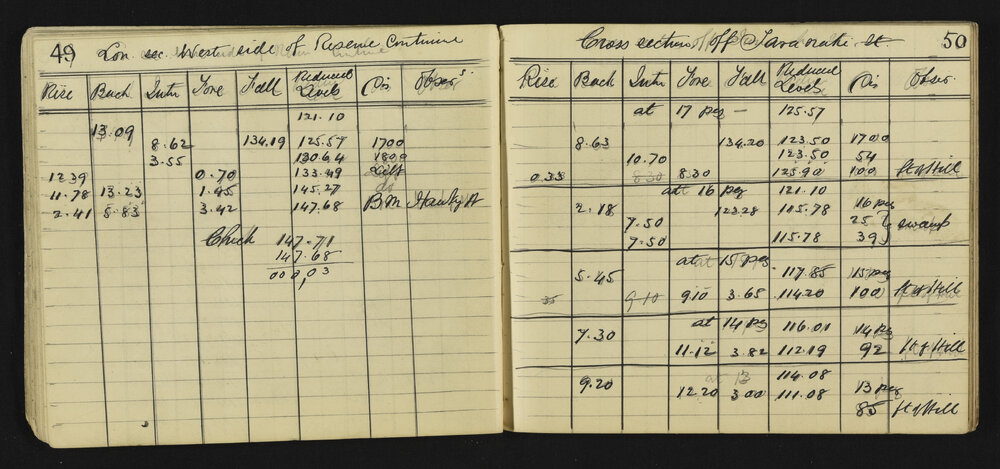 49 Lon. sec. West side of Reserve Continue
Rise Back Inter Fore Fall Reduced Levels Dis Obser's
121.10
13.09
8.62 134.19 125.57 1700
3.55 130.64 1800
12.39 0.70 133.49 Lift
11.78 13.23 1.45 145.27 do
2.41 5.83 3.42 147.68 B.M
Check 147.71
147.68
000,03
Cross section off Taranaki St. 50
Rise Back Inter Fore Fall Reduced Levels Dis Obser.
at 17 peg — 125.57
8.63 134.20 123.50 1700
10.70 123.50 54
0.33 8.30 8.30 125.90 100 ft of Hill
at 16 peg 121.10
2.18 123.28 115.78 16 peg
7.50 25 } swamp
7.50 115.78 39
at 15 peg
5.45 117.85 15 peg
35 9.10 9.10 3.65 114.20 100 ft of Hill
at 14 peg 116.01 14 peg
7.30
11.12 3.82 112.19 92 ft of Hill
at 13 114.08
9.20 12.20 3.00 111.08 13 peg
85 ft of Hill